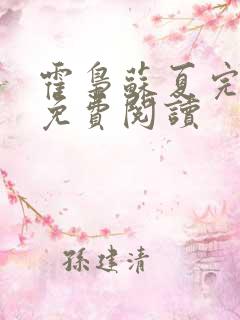 霍梟蘇夏完
免費閱讀
孫建清